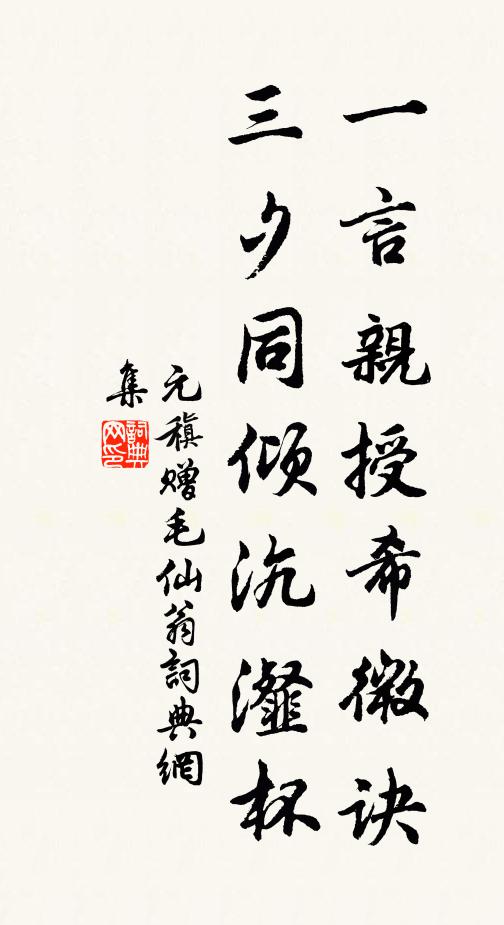 一言親授希微訣
三夕同傾沆瀣杯
元稹贈毛仙翁詞典網
集
詞典網印